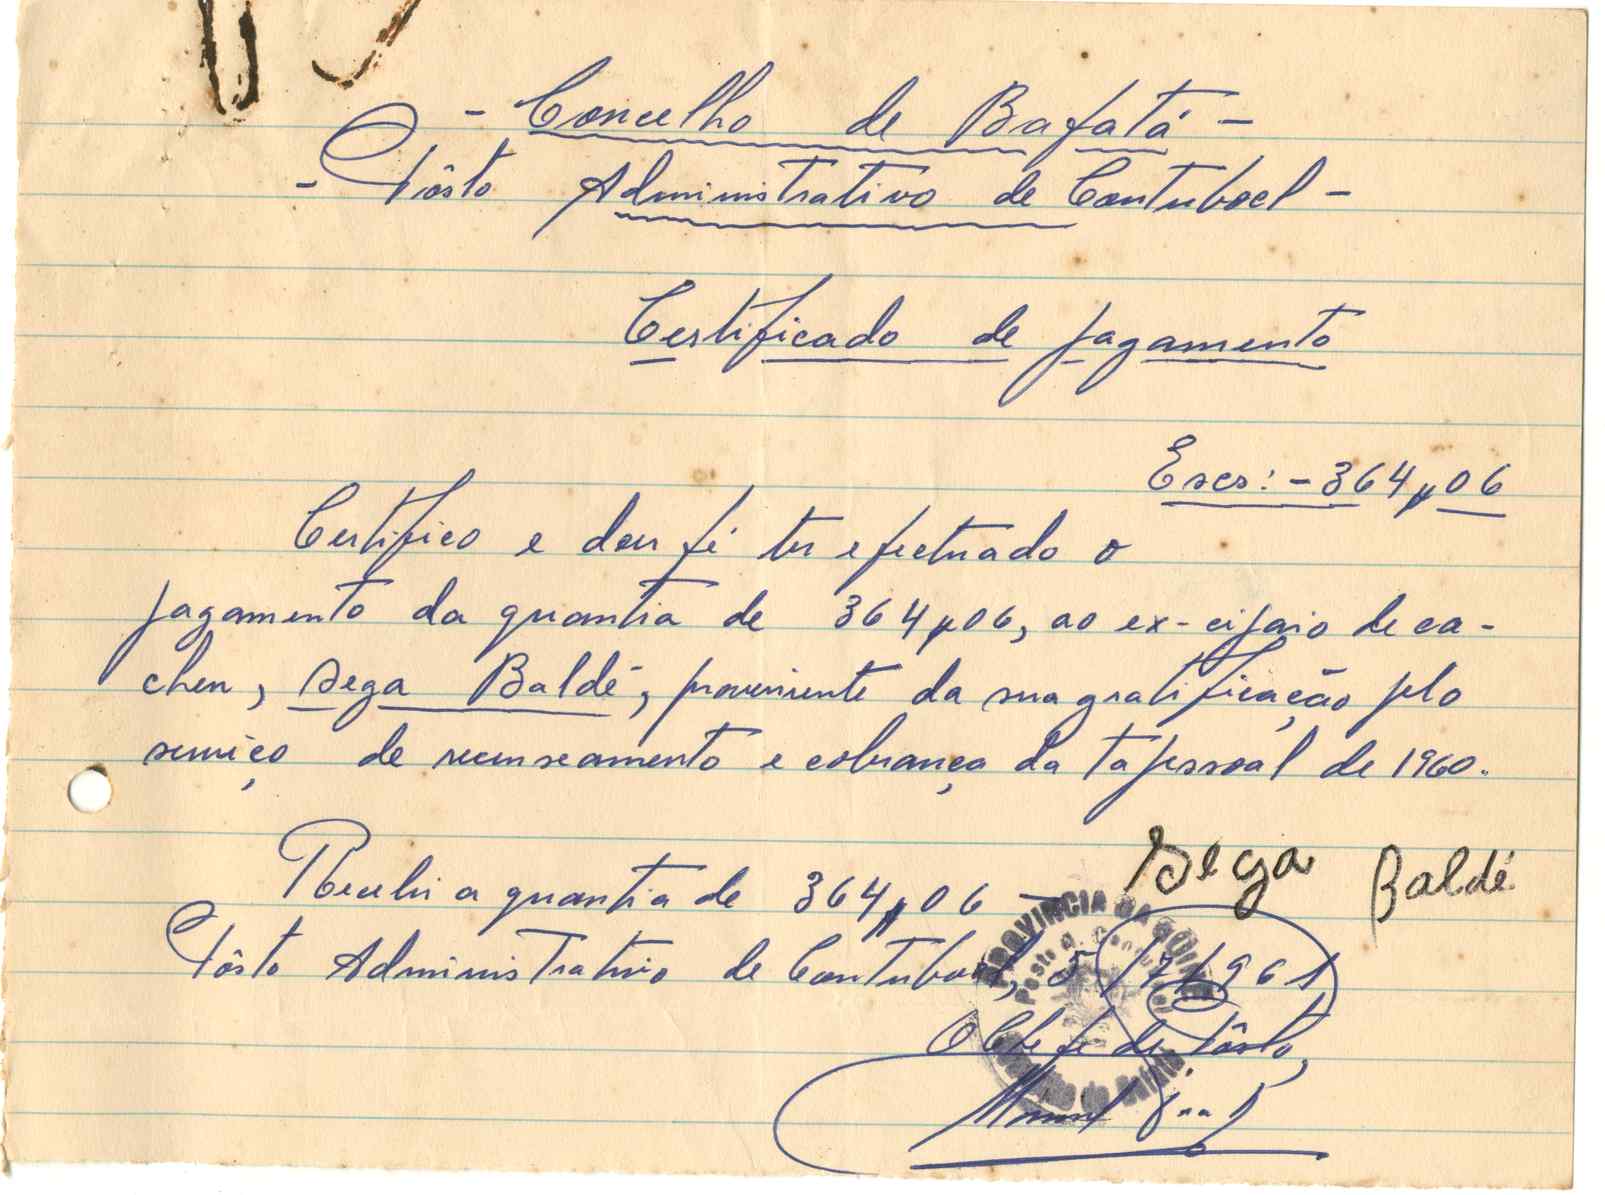 - Concelho de Bafatá -
- Pôsto Administrativo de Contuboel -
Certificado de pagamento
Escs: - 364$06
Certifico e dou fé ter efectuado o
pagamento da quantia de 364$06, ao ex-cipaio de ca-
cheu, Sega Baldé, proveniente da sua gratificação pelo
serviço de recenseamento e cobrança da ta pessoal de 1960.
Recebi a quantia de 364$06 -
Sega Baldé
Pôsto Administrativo de Contuboel, 5/7/1961
O Chefe de Pôsto,
Manuel
PROVINCIA DA GUINÉ
Concelho de Bafatá